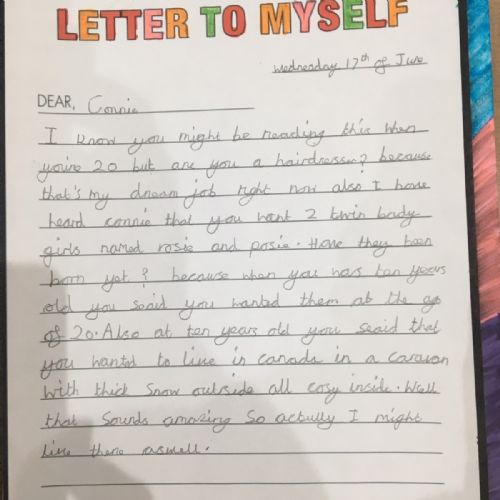 LETTER TO MYSELF
wednesday 17th of June
DEAR, Connie
I know you might be reading this when
you're 20 but are you a hairdresser? because
that's my dream job right now also I have
heard connie that you want 2 twin baby
girls named rosie and posie. Have they been
born yet? because when you was ten years
old you said you wanted them at the age
of 20. Also at ten years old you seaid that
you wanted to live in canada in a caravan
with thick snow outside all cosy inside. Well
that sounds amazing so actully I might
live there aswell.